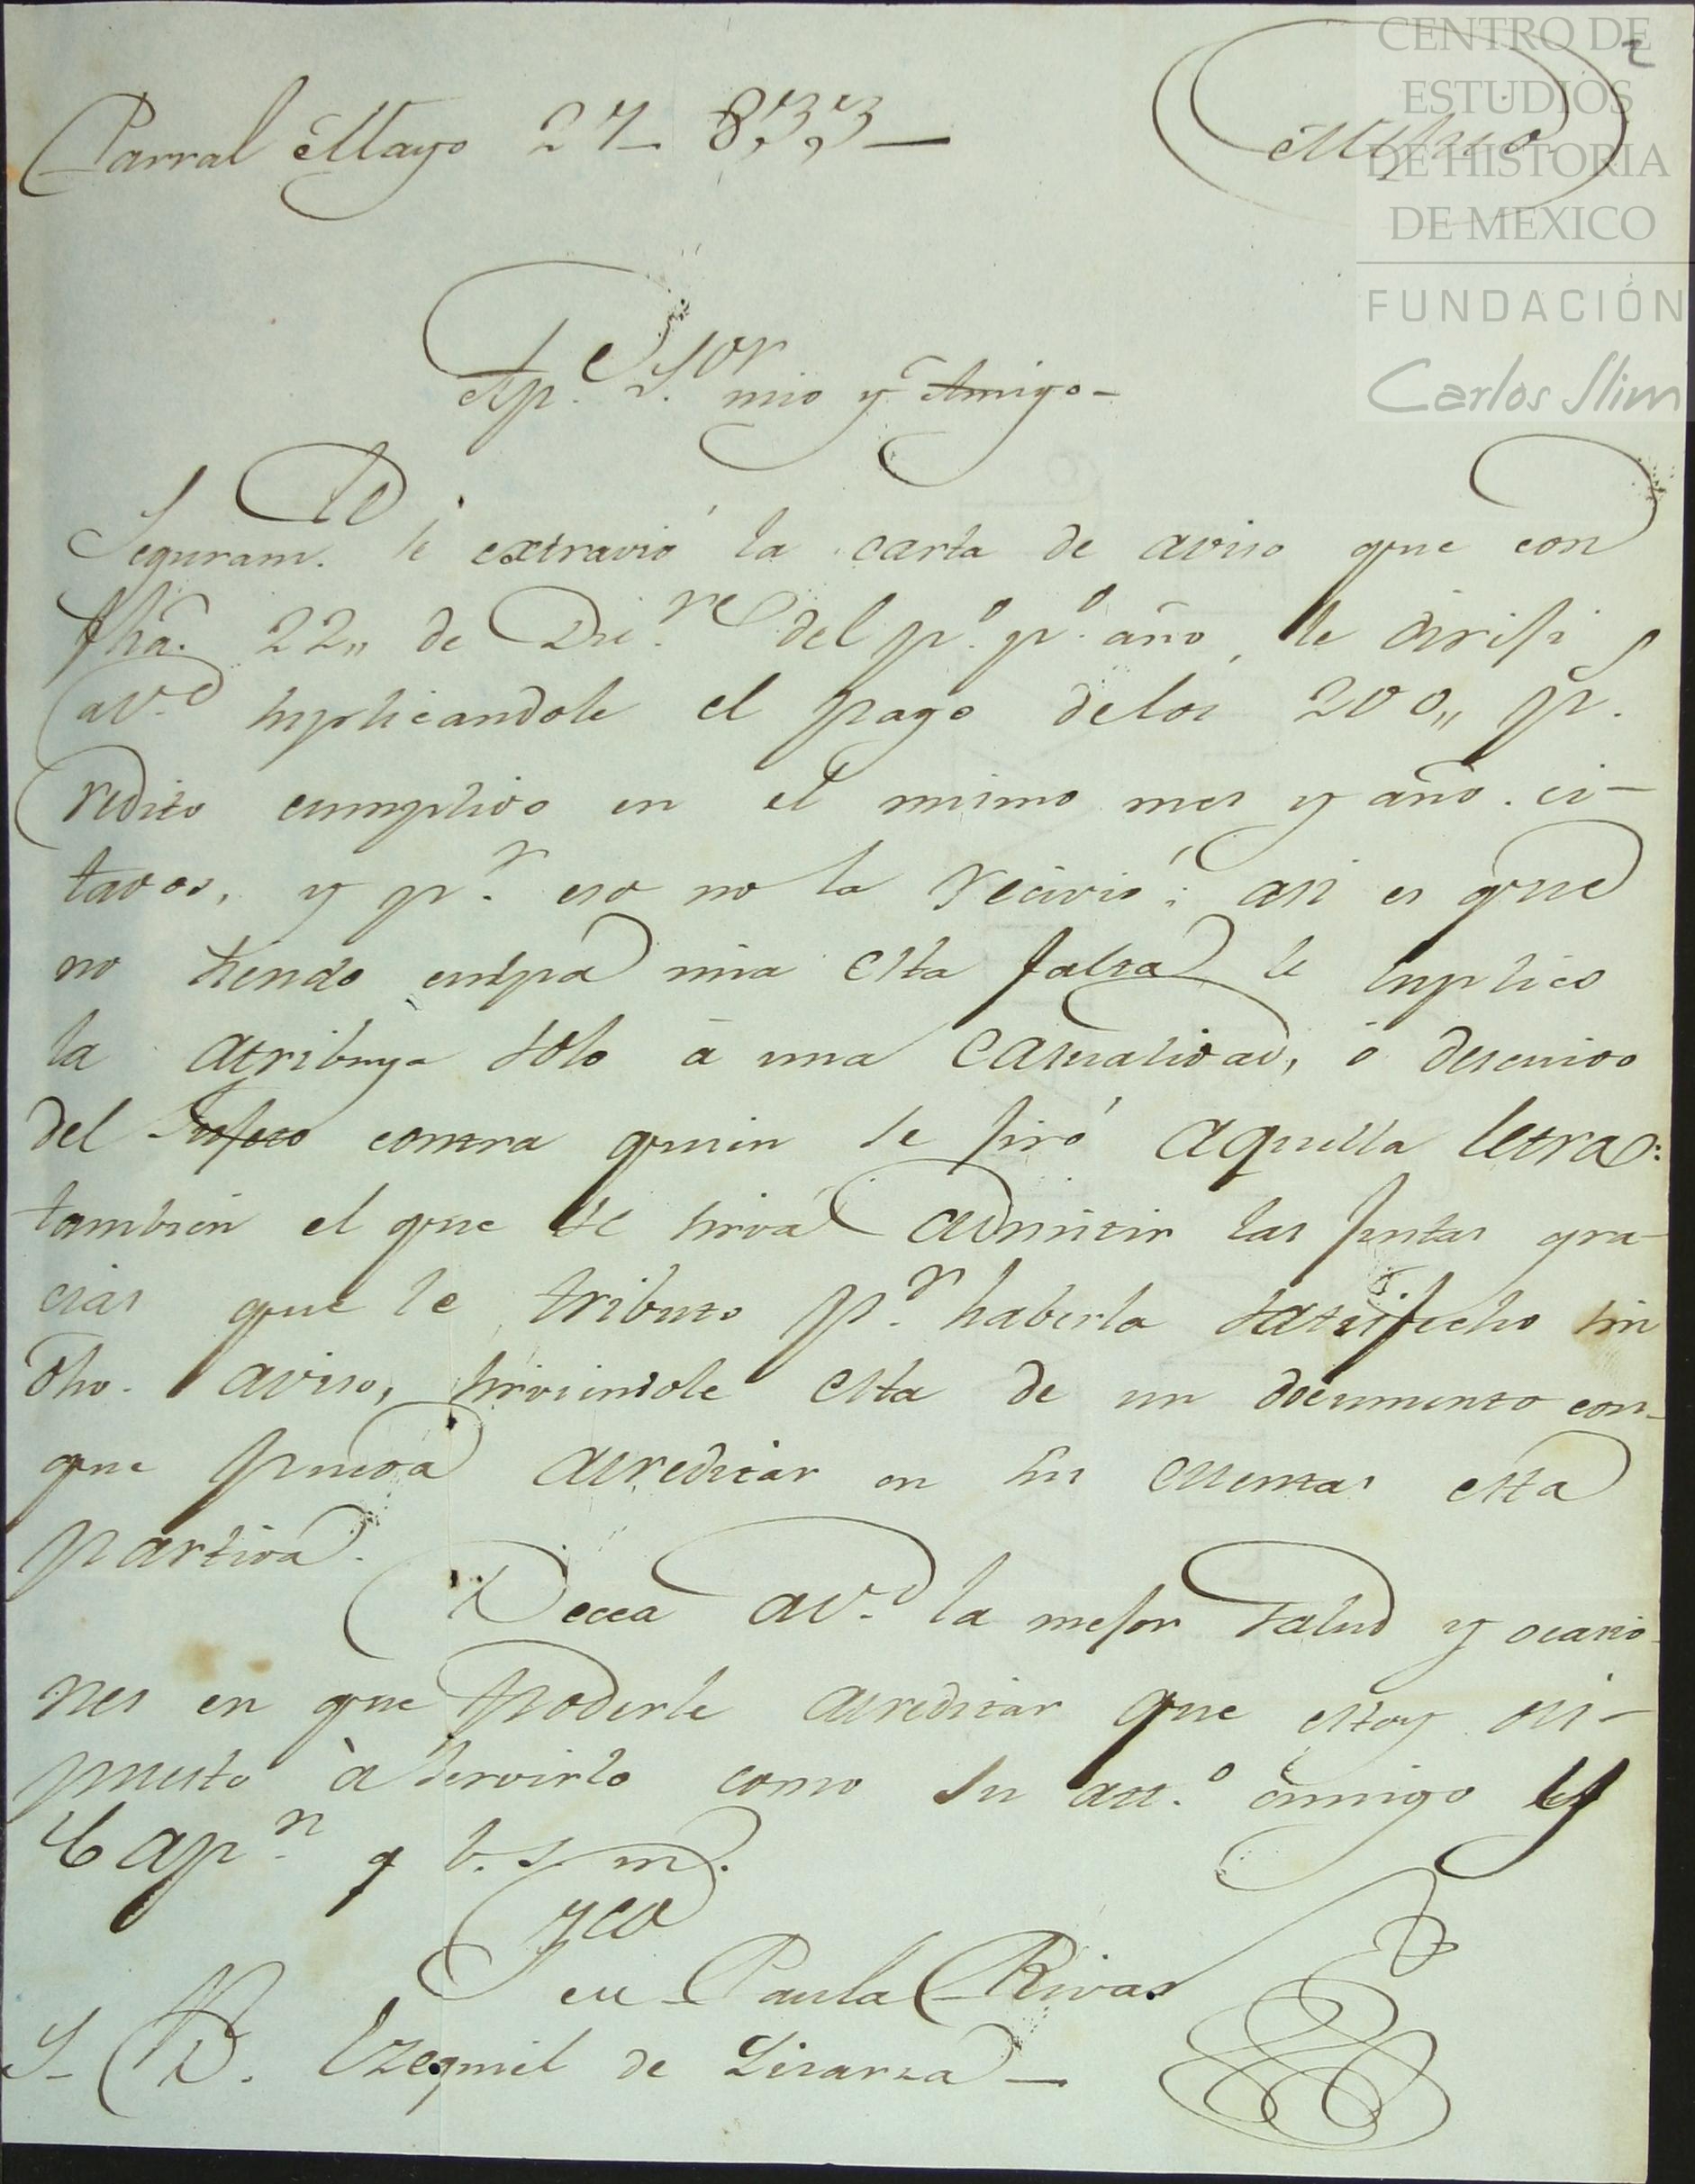 CENTRO DE
ESTUDIOS
DE HISTORIA
DE MEXICO
FUNDACIÓN
Carlos Slim
2
Parral Mayo 27 833
Mexico
Ap.e S.or mio y Amigo
Seguram.te se extravió la carta de aviso que con
fhã. 22,, de Dic.re del p.o p.o año, le dirifi
av.d suplicandole el pago delos 200,, ps.
redito cumplido en el mismo mes y año ci-
tados, y p.r eso no la recivió: asi es que
no siendo culpa mia esta falta le suplico
la atribuya solo á una casualidad, ó descuido
del Sufeto contra quien se firó aquella letra:
tambien el que se sirva admitir las fustas gra-
cias que le tributo p.r haberla satisfecho sin
dho. aviso, sirviendole esta de un documento con-
que pueda acreditar en sus cuentas esta
partida.
Decea av.d la mefor salud y ocacio-
nes en que poderle acreditar que estoy dis-
puesto à servirlo como su att.o amigo y
Cap.n q b. s. m.
Fran.co de Paula Rivas
S. D. Ezequiel de Lisarza